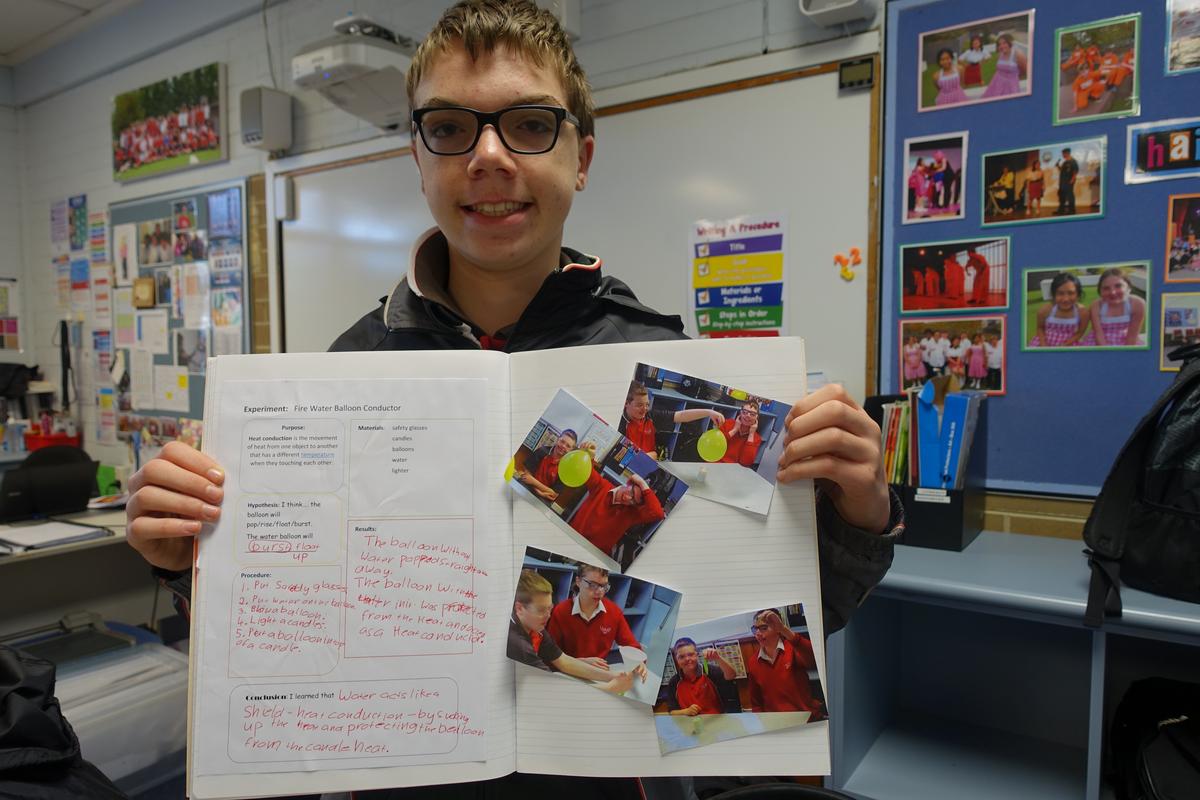 Writing A Procedure
Title
Materials or
Ingredients
Steps in Order
Step-by-step instructions
ha
Experiment: Fire Water Balloon Conductor
Purpose:
Heat conduction is the movement
of heat from one object to another
that has a different temperature
when they touching each other.
Materials: safety glasses
candles
balloons
water
lighter
Hypothesis: I think.... the
balloon will
pop/rise/float/burst.
The water balloon will
burst float
up
Procedure:
1. Put glasses
2. Put water balloon
3. balloon.
4. Light a candles.
5. Put a balloon
of a candle.
Results:
The balloon with
water straight
away.
The balloon with
water in it was
from the heat and
as a heat conductor.
Conclusion: I learned that Water acts like a
Shield - heat conduction - by
up the heat and protecting the balloon
from the candle heat.